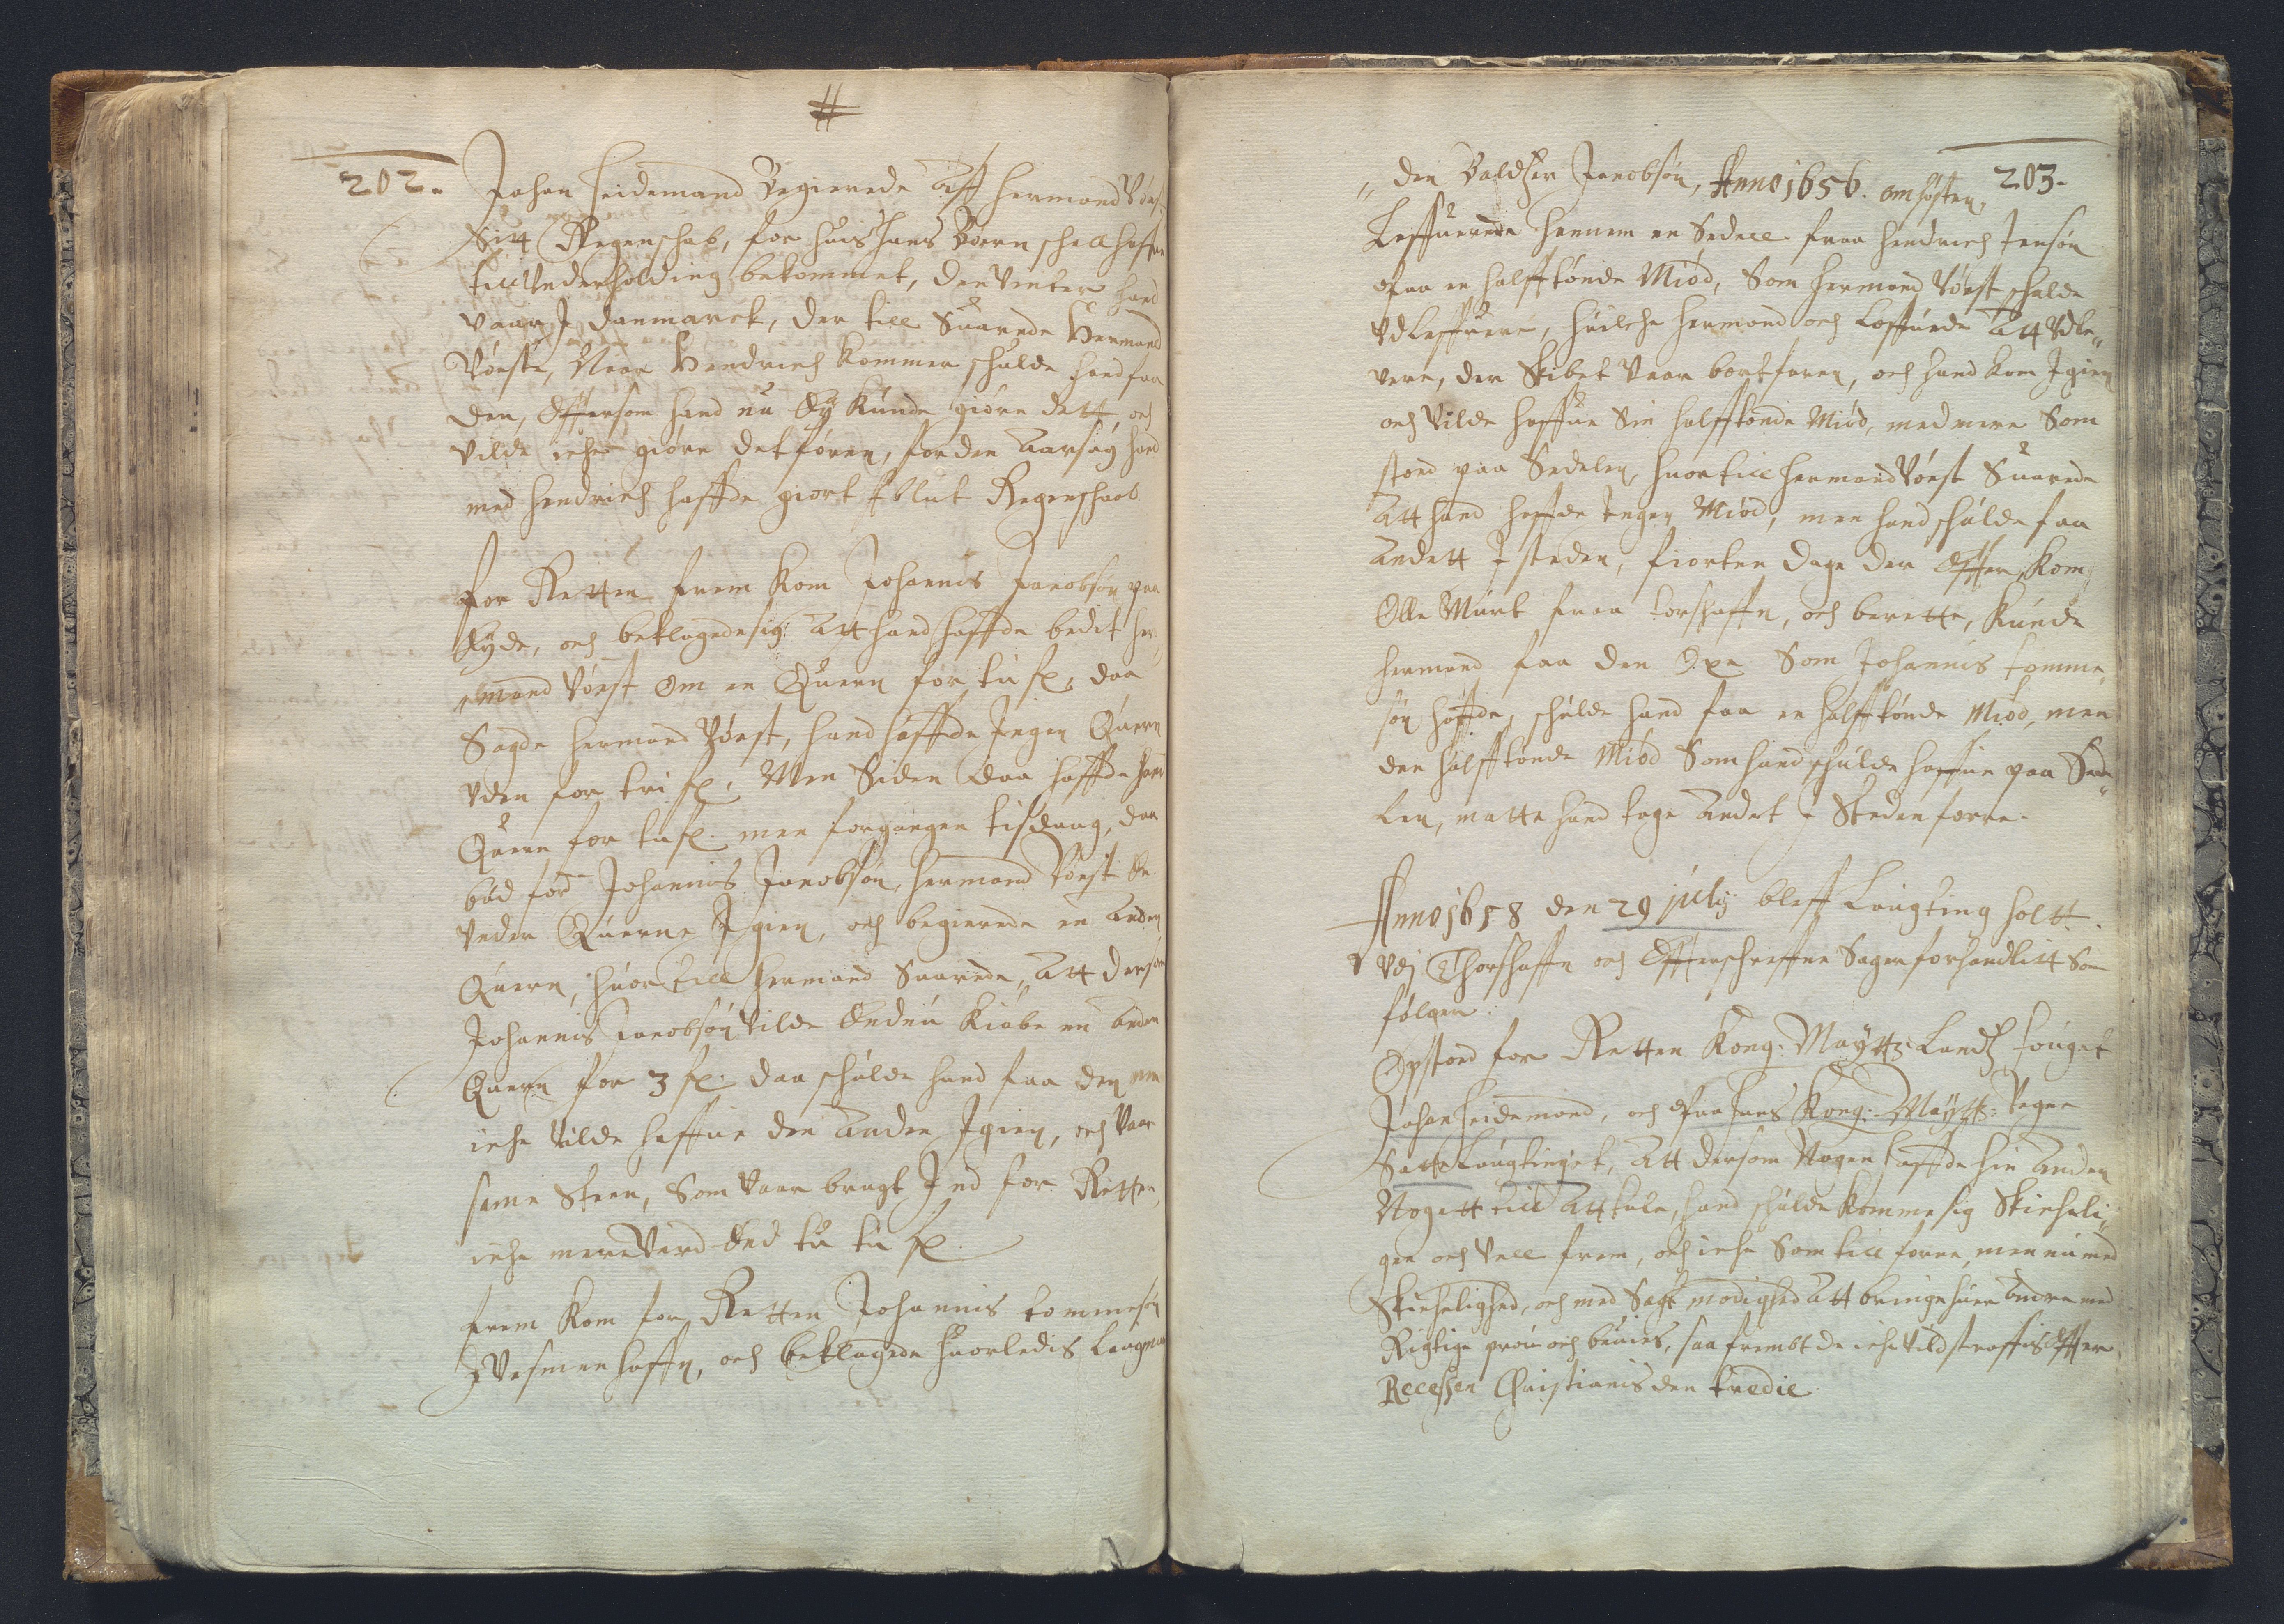 202.
Johan Heidemand Begierede Aff Hermand Vørst
Sitt Regenschab, for huis Hans Børn schall haffue
till Underholding bekommet, den Vinter hand
vaar J danmarck, der till Suarede Hermand
Vørste, Naar Hendrich kommer schulde hand faa
den, Effersom hand nu Ey kunde giøre dett, och
vilde iche giøre det føren, for den Aarsag hand
med Hendrich haffde giort Regenschaab
For Retten frem kom Johannis Jacobsøn paa
Eyde, och beklagede sig Att hand haffde bedit her„
mand Vørst Om en Quern for tu sl. daa
Sagde Hermand Vørst, hand haffde Jngen Quern
vden for tri sl. Men Siden daa haffde hand
Quern for tu sl. men forgangen tisdaag, daa
bød for Johannis Jacobsøn, Hermand Vørst
Querne Jgien, och begierede en Anden
Quern, huor till Hermand Suarede, Att dersom
Johannis Jacobsøn vilde Endnu kiøbe en anden
Quern for 3 sl. daa schulde hand faa den
iche vilde haffue den Anden Jgien, och vaar
same Steen, Som vaar bragt Jnd for Retten,
iche mere verd End tu sl.
Frem kom for Retten Johannis tommesøn
J Vesmenhaffn, och beklagede huorledis Laugman
203.
„ den Baldser Jacobsøn, Anno 1656. om høsten,
Leffuerede hannem en Sedell fraa Hendrich Jensøn
paa en halfftønde Miød, Som Hermand Vørst schulde
vdleffuere, huilche Hermand och loffuede Att vdle„
vere, der Skibet vaar bortfaren, och hand kom Jgien
och vilde haffue Sin halfftønde Miød, med mere Som
stod paa Sedelen, huortill Hermand Vørst Suarede
Att hand haffde Jngen Miød, men hand schulde faa
Andett J steden, fiorten dage der Effter, kom
Olle Murt fraa torshaffn, och berette, kunde
Hermand faa den Oxe Som Johannis tomme„
søn haffde, schulde hand faa en halfftønde Miød, men
den halfftønde Miød Som hand schulde haffue paa Sede„
len, matte hand tage Andet J Steden forre.
Anno 1658 den 29 julij bleff Laugting holtt
Vdj Thorshaffn och Effterschreffne Sager forhandlitt Som
følger.
Opstod for Retten Kong: Maytts: Landz fougit
Johan Heidemand, och paa Hans Kong: Maytts: Vegne
Satte Laugtinget, Att dersom Nogen haffde hin Anden
Nogett till Att tale, hand schulde komme sig Skicheli„
gen och vell frem, och iche Som till forne, men nu med
Skichelighed, och med Sagtmodighed Att bringe huer Andre med
Rigtige prou och beuies, saa frembt de iche vild straffis effter
Recessen Christianis den tredie